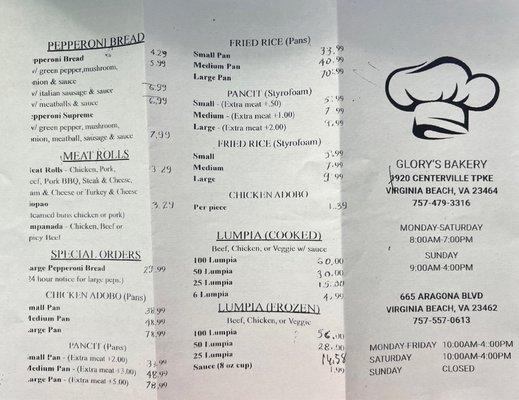 PEPPERONI BREAD
epperoni Bread 4.29
w/ green pepper,mushroom, 5.99
onion & sauce
w/ italian sausage & sauce 6.99
w/ meatballs & sauce 6.99
epperoni Supreme
w/ green pepper, mushroom,
onion, meatball, sausage & sauce 7.99
MEAT ROLLS
eat Rolls - Chicken, Pork, 3.29
eef, Pork BBQ, Steak & Cheese,
am & Cheese or Turkey & Cheese
iopao 3.29
(steamed buns chicken or pork)
mpanada - Chicken, Beef or
picy Beef
SPECIAL ORDERS
arge Pepperoni Bread 29.99
24 hour notice for large peps.)
CHICKEN ADOBO (Pans)
mall Pan 38.99
Medium Pan 48.99
arge Pan 78.99
PANCIT (Pans)
mall Pan - (Extra meat +2.00)
Medium Pan - (Extra meat +3.00) 48.99
arge Pan - (Extra meat +5.00) 78.99
FRIED RICE (Pans)
Small Pan 33.99
Medium Pan 40.99
Large Pan 70.99
PANCIT (Styrofoam)
Small - (Extra meat +.50) 5.99
Medium - (Extra meat +1.00) 7.99
Large - (Extra meat +2.00) 9.99
FRIED RICE (Styrofoam)
Small 5.99
Medium 7.99
Large 9.99
CHICKEN ADOBO
Per piece 1.39
LUMPIA (COOKED)
Beef, Chicken, or Veggie w/ sauce
100 Lumpia 60.00
50 Lumpia 30.00
25 Lumpia 15.00
6 Lumpia 4.99
LUMPIA (FROZEN)
Beef, Chicken, or Veggie
100 Lumpia 56.00
50 Lumpia 28.00
25 Lumpia 14.58
Sauce (8 oz cup) 1.99
GLORY'S BAKERY
1920 CENTERVILLE TPKE
VIRGINIA BEACH, VA 23464
757-479-3316
MONDAY-SATURDAY
8:00AM-7:00PM
SUNDAY
9:00AM-4:00PM
665 ARAGONA BLVD
VIRGINIA BEACH, VA 23462
757-557-0613
MONDAY-FRIDAY 10:00AM-4:00PM
SATURDAY 10:00AM-4:00PM
SUNDAY CLOSED